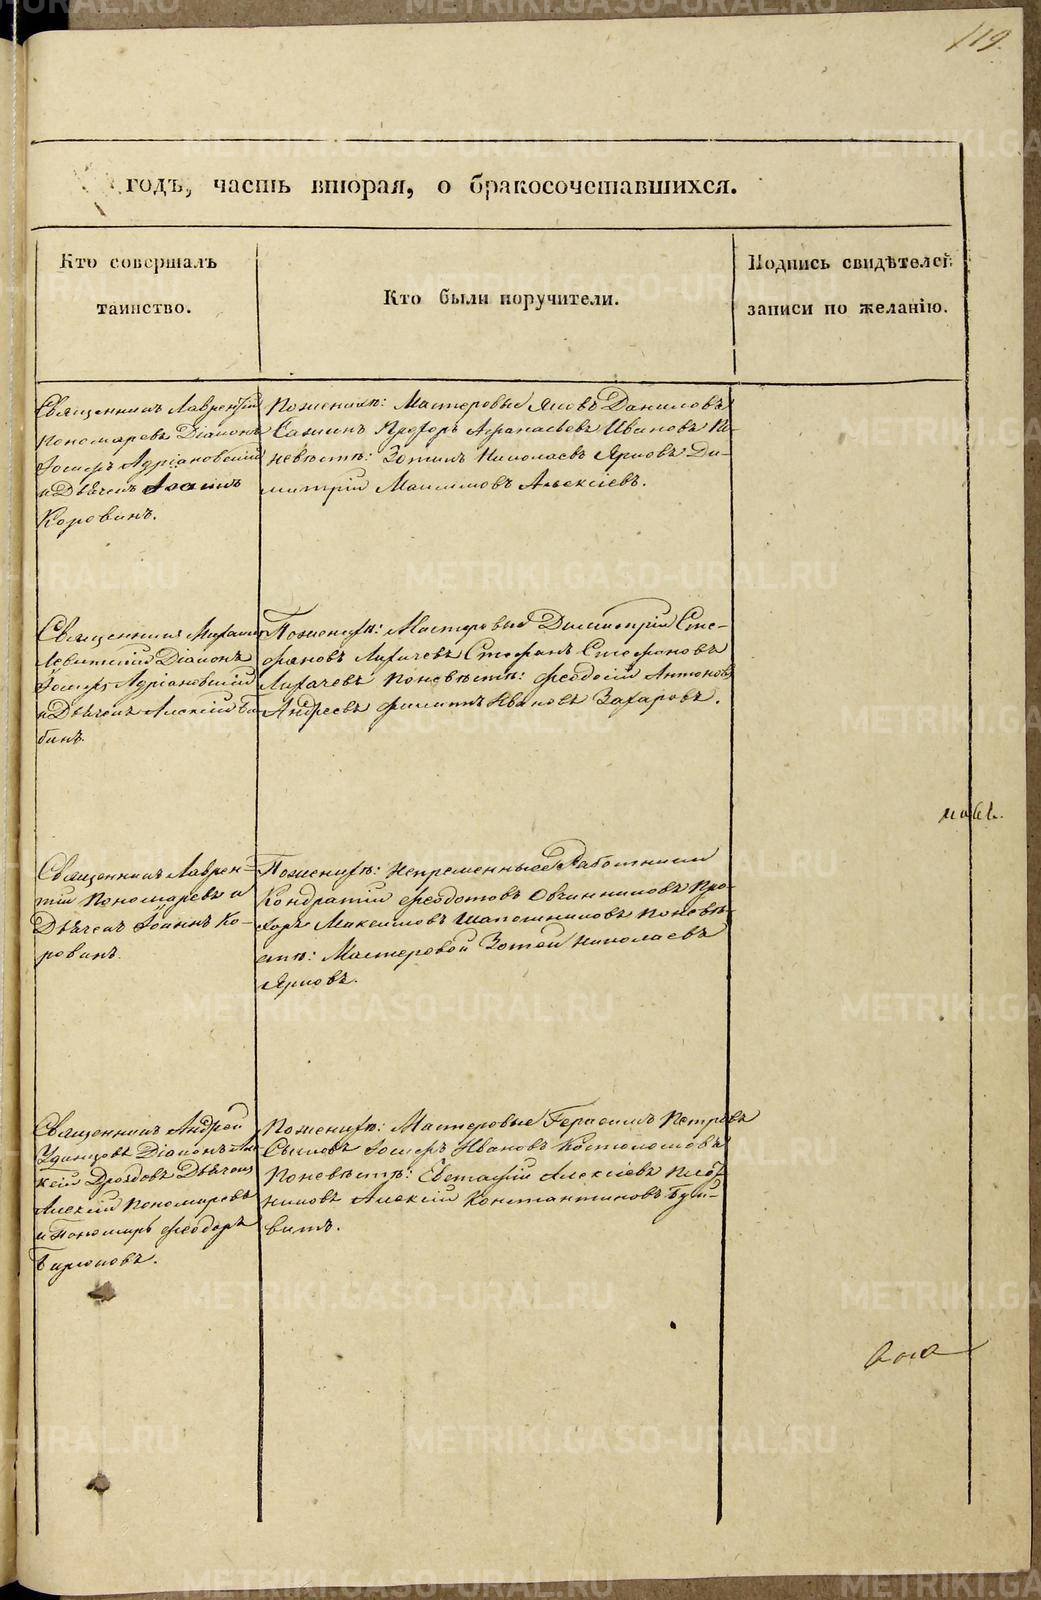 119.
годъ, часть вторая, о бракосочетавшихся.
Кто совершалъ
таинство.
Кто были поручители.
Подпись свидѣтелей
записи по желанію.
Священникъ Лаврентій
Пономаревъ Діаконъ
Іосифъ Адріановскій
и Дьячекъ Іоаннъ
Коровинъ.
Поженихѣ: Мастеровые Яковъ Даниловъ
Прохоръ Афанасьевъ Ивановъ По
невѣстѣ: Зотикъ Николаевъ Ярковъ Ди-
митрій Максимовъ Алексѣевъ.
Священникъ Михаилъ
Левитскій Діаконъ
Іосифъ Адріановскій
и Дьячекъ Алексій Ба
бинъ.
Поженихѣ: Мастеровые Димитрій Сте-
фановъ Лихачевъ Стефанъ Стефановъ
Лихачевъ Поневѣстѣ: Феодосій Антоновъ
Андреевъ Филиппъ Ивановъ Захаровъ.
Священникъ Лаврен-
тій Пономаревъ и
Дьячекъ Іоаннъ Ко-
ровинъ.
Поженихѣ: Непременные Работники
Кондратій Феодотовъ Овчинниковъ Про-
хоръ Максимовъ Шапошниковъ Поневѣ-
стѣ: Мастеровой Зотей Николаевъ
Ярковъ.
Священникъ Андрей
Удинцовъ Діаконъ Але
ксій Дроздовъ Дьячекъ
Алексій Пономаревъ
и Пономарь Феодоръ
Бирюковъ.
Поженихѣ: Мастеровые Герасимъ Петровъ
Іосифъ Ивановъ Костоломовъ
Поневѣстѣ: Евстафій Алексіевъ
Алексій Константиновъ
METRIKI.GASO-URAL.RU